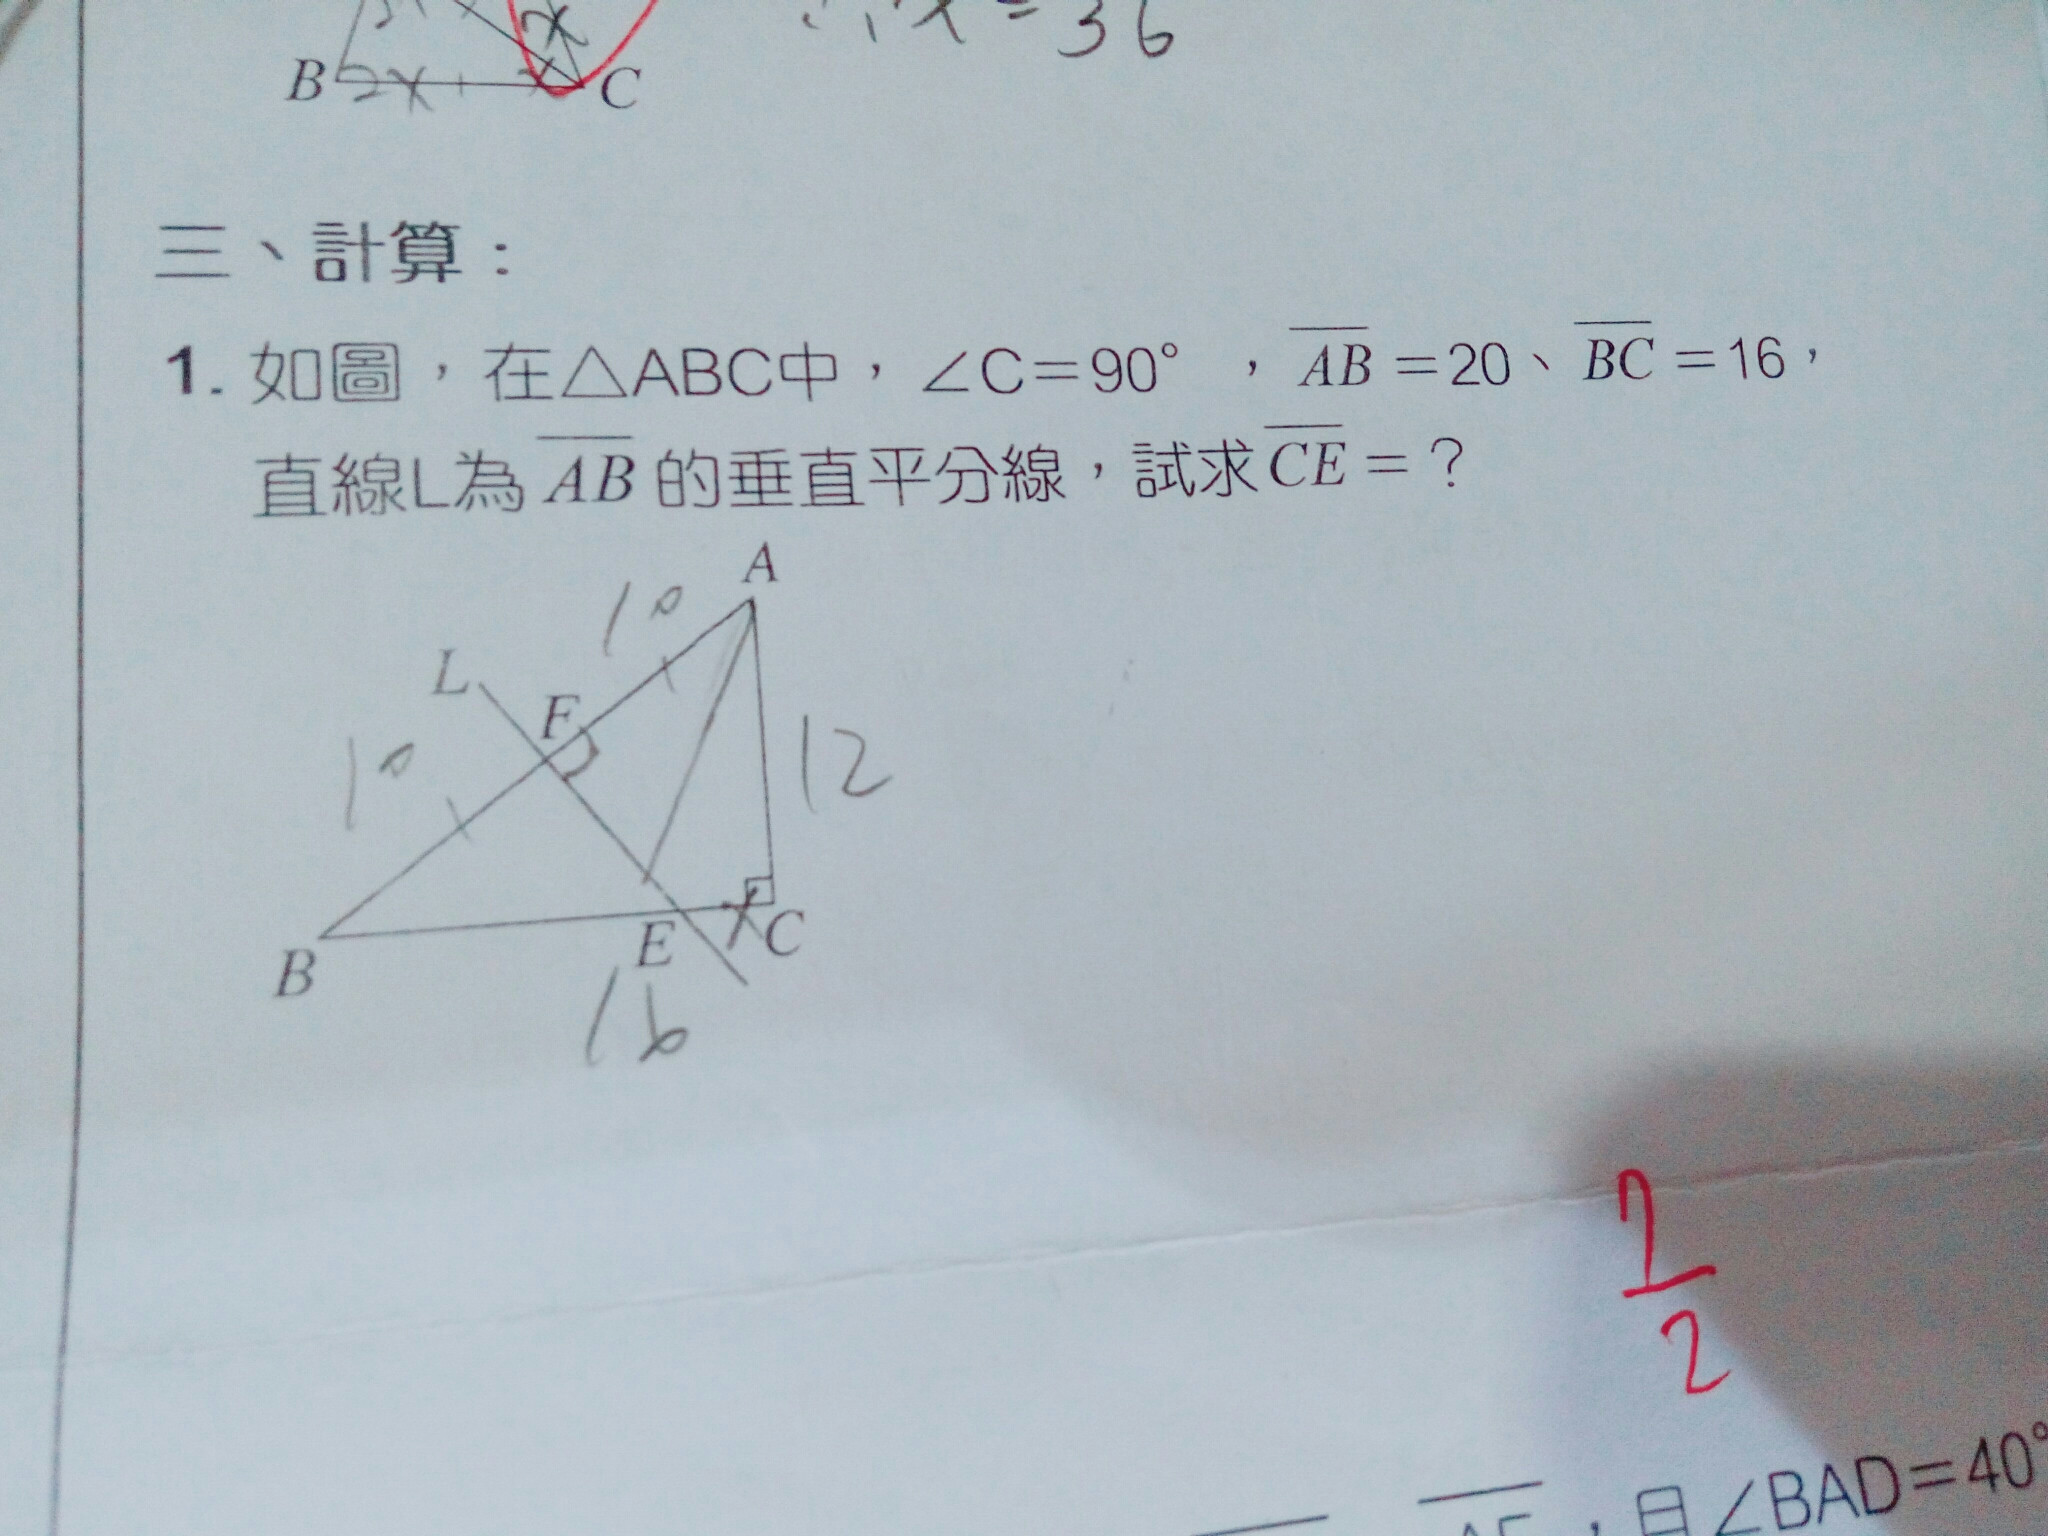 x
B 2x x C
∴x=36
三、計算：
1. 如圖，在△ABC中，∠C=90°，AB=20、BC=16，
直線L為AB的垂直平分線，試求CE=？
A
10
L
F
10
12
B
E
x
C
16
1
2
，且∠BAD=40°